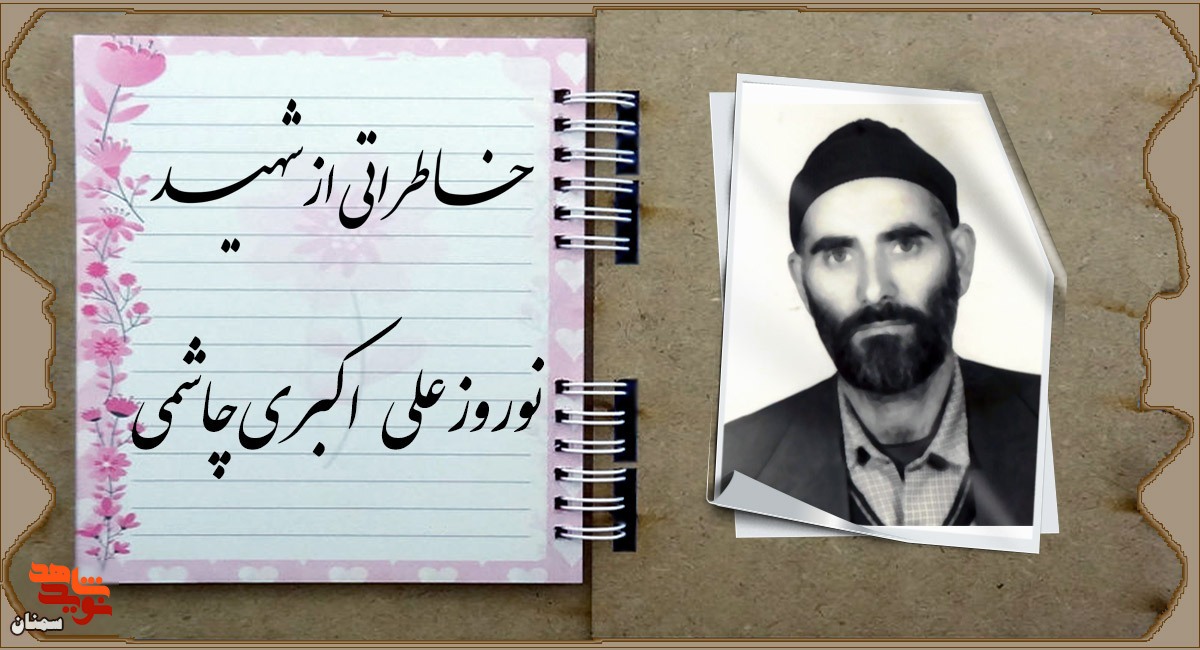 خاطراتی از شهید
نوروزعلی اکبری چاشمی
نوید شاهد
سمنان